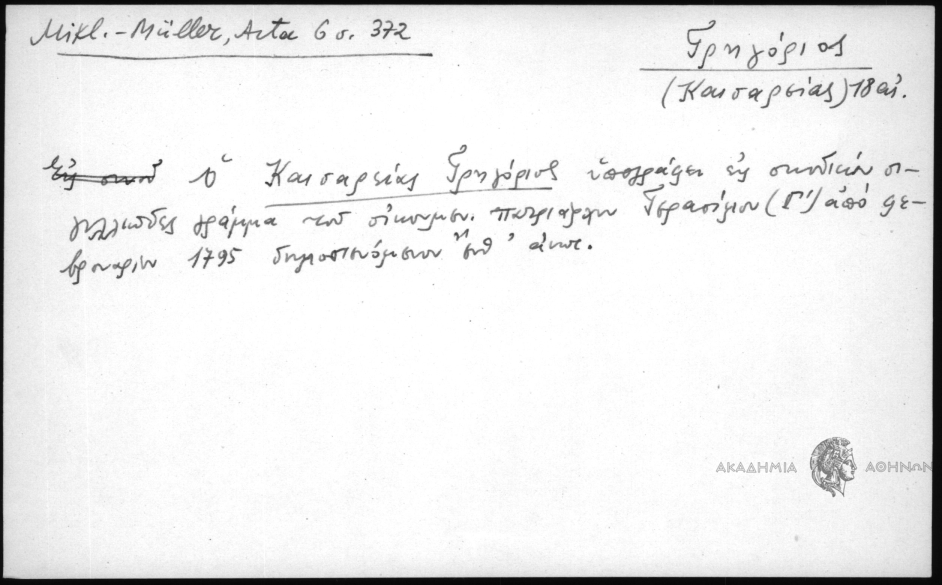 Mikl.-Müller, Acta 6 σ. 372
Γρηγόριος
(Καισαρείας) 18 αἰ.
Ὁ Καισαρείας Γρηγόριος ὑπογράφει εἰς συνοδικὸν σι-
γιλλιῶδες γράμμα τοῦ οἰκουμεν. πατριάρχου Γερασίμου (Γ') ἀπὸ φε-
βρουαρίου 1795 δημοσιευόμενον ἔνθ' ἀνωτ.
ΑΚΑΔΗΜΙΑ ΑΘΗΝΩΝ